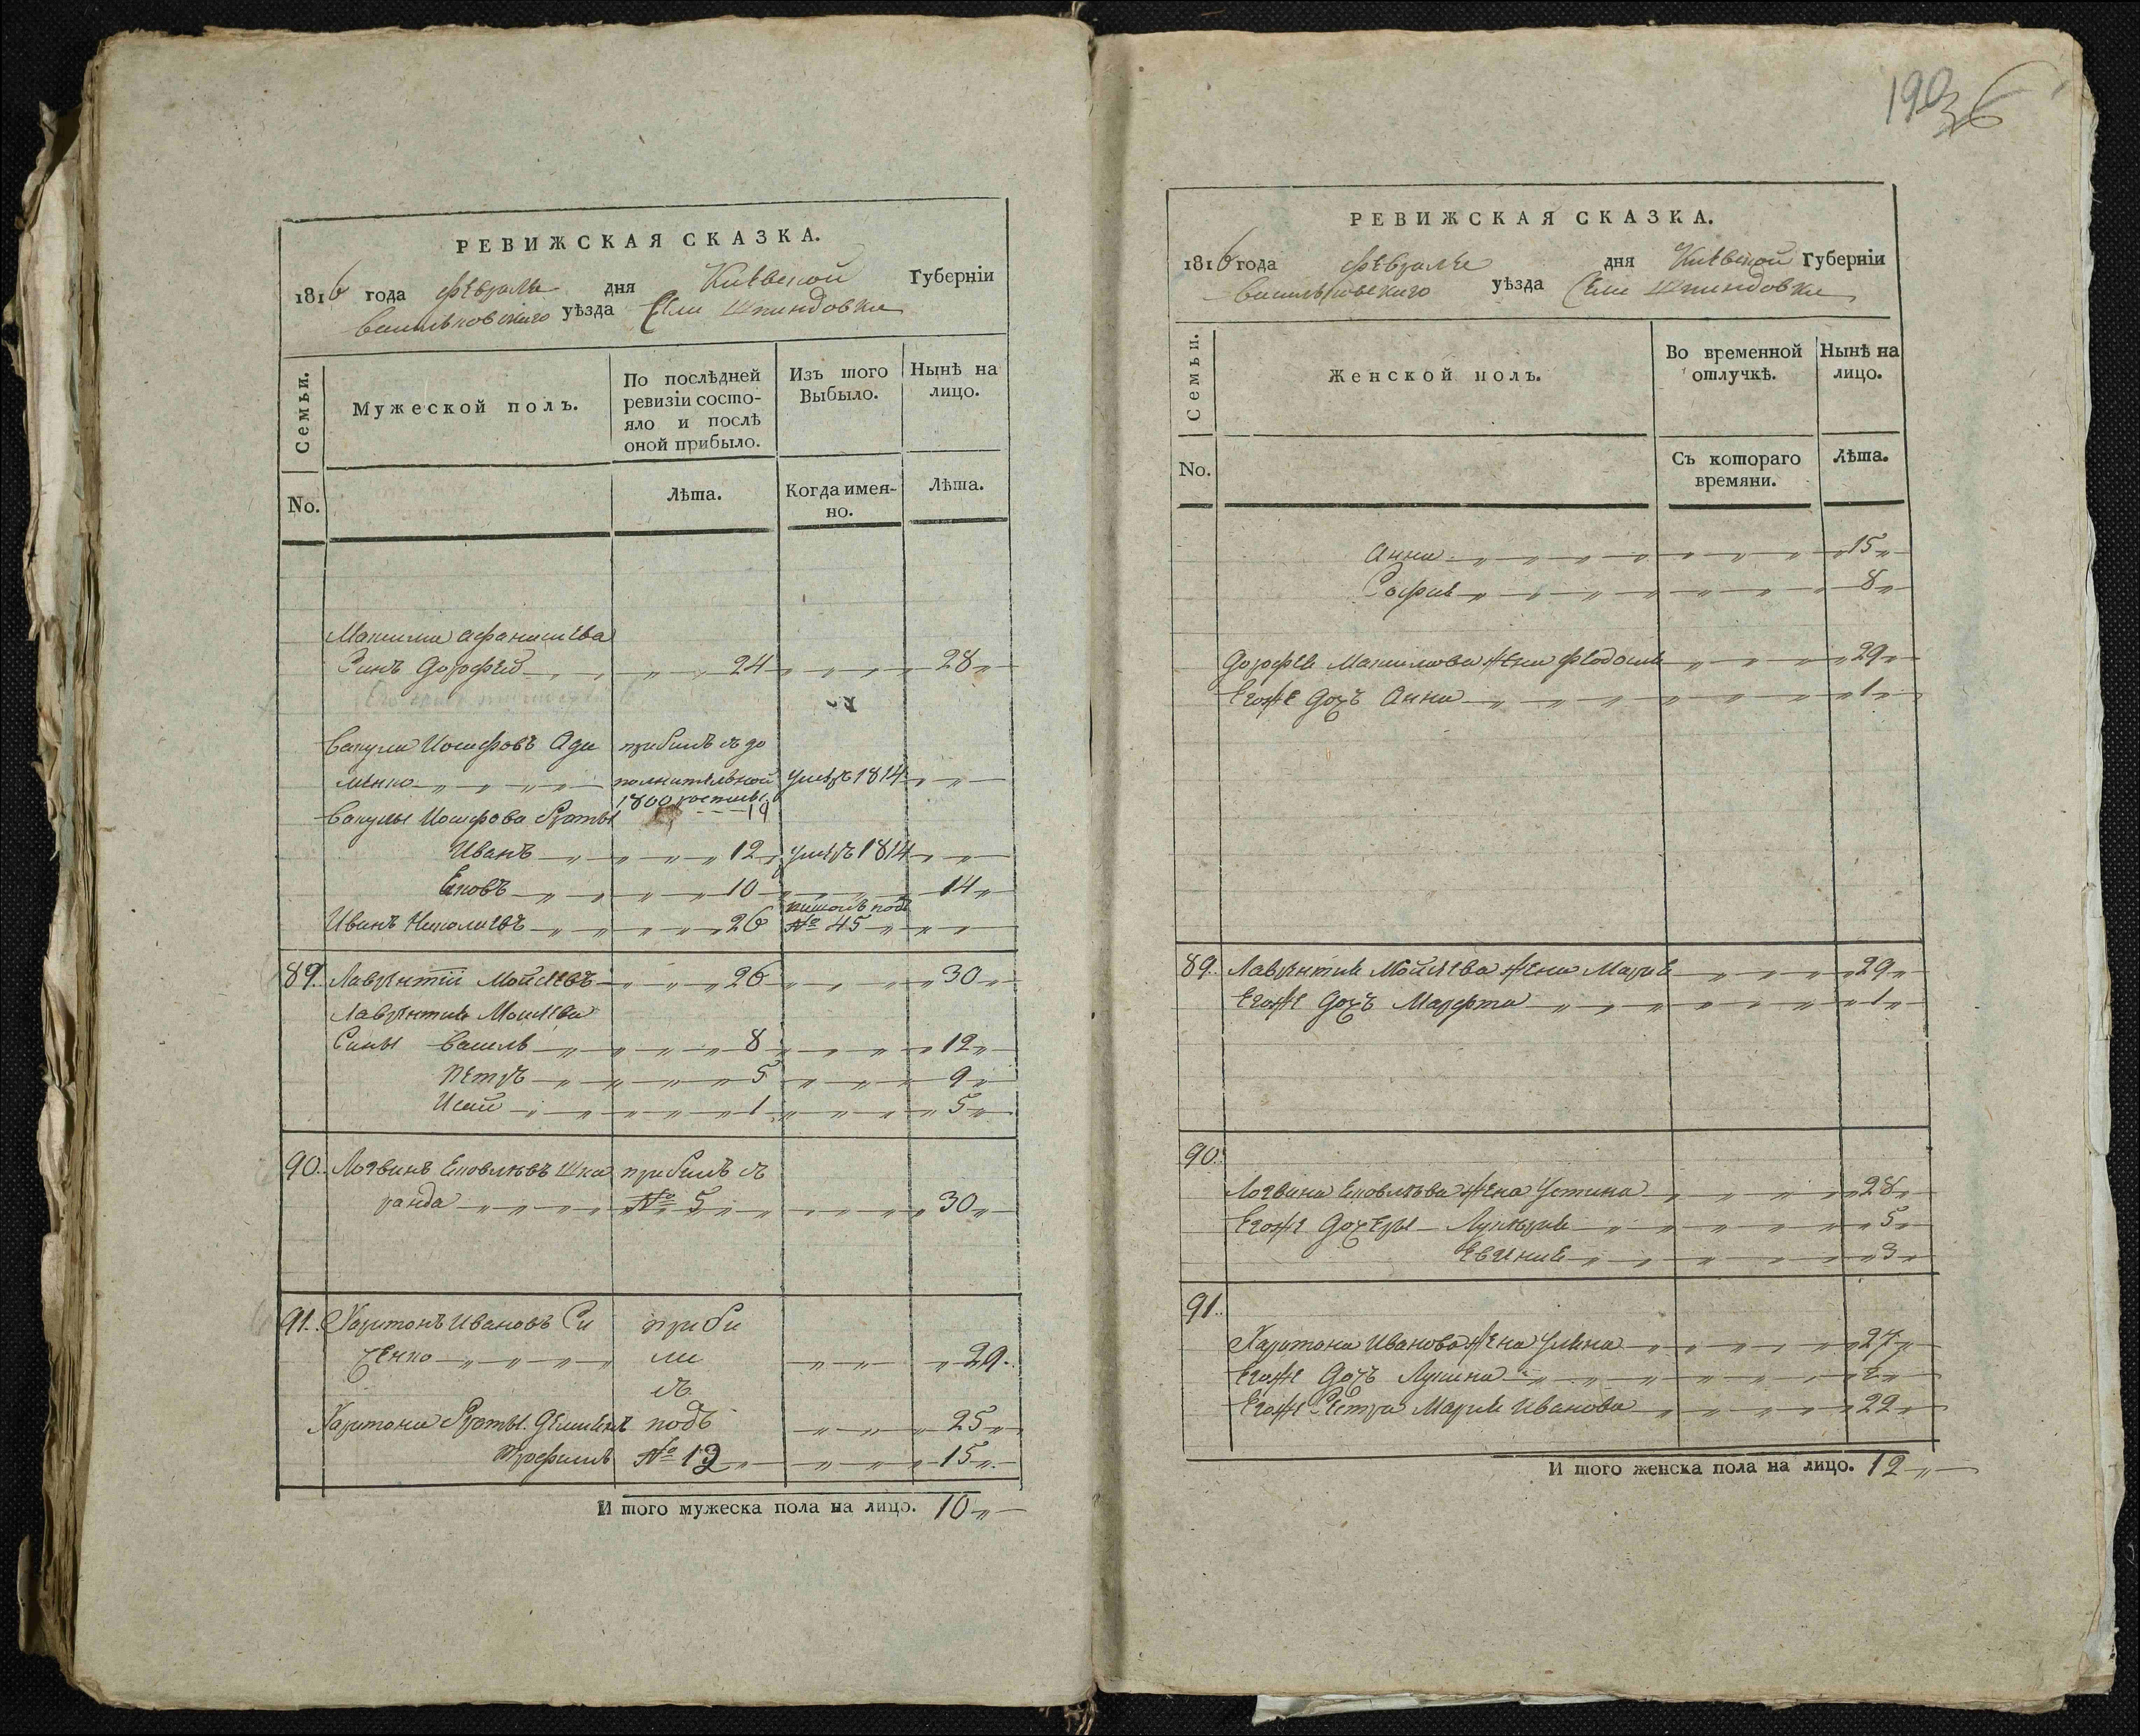 РЕВИЖСКАЯ СКАЗКА.
1816 года февраля дня Кіевской Губерніи
Васильковского уѣзда Села Шпиндовки
Семьи.
Мужеской полъ.
По послѣдней ревизіи состо-
яло и послѣ
оной прибыло.
Изъ того
Выбыло.
Нынѣ на
лицо.
No.
Лѣта.
Когда имен-
но.
Лѣта.
Максима Афанасиева
Синъ Дорофей 24 28
Вакула Иосифовъ Ада прибылъ съ до
менко полнительной умеръ 1814
1800 19
Вакулы Иосифова браты
Иванъ 12 умеръ 1814
Яковъ 10 14
подъ
Иванъ Николаевъ 26 № 45
89. Лаврентій Мойсеевъ 26 30
Лаврентия Моисеева
Сины Василь 8 12
Петръ 5 9
Исай 1 5
90. Логвинъ Яковлевъ Шка прибылъ съ
ранда № 5 30
91. Харитонъ Ивановъ Си прибы
ченко ли 29
съ
Харитона браты Демиянъ подъ 25
Трофимъ № 12 15
И того мужеска пола на лицо. 10
190
36
РЕВИЖСКАЯ СКАЗКА.
1816 года февраля дня Кіевской Губерніи
Васильковского уѣзда Села Шпиндовки
Семьи.
Женской полъ.
Во временной
отлучкѣ.
Нынѣ на
лицо.
No.
Съ котораго
времяни.
Лѣта.
Анна 15
София 8
Дорофея Максимова жена Феодосия 29
Егоже дочъ Анна 1
89. Лаврентия Мойсеева жена Мария 29
Егоже дочъ Марфта 1
90.
Логвина Яковлева жена Устина 28
Егоже дочеры Лукерия 5
Евгения 3
91.
Харитона Иванова жена Улияна 27
Егоже дочъ Лукина 2
Егоже Сестра Мария Иванова 22
И того женска пола на лицо. 12